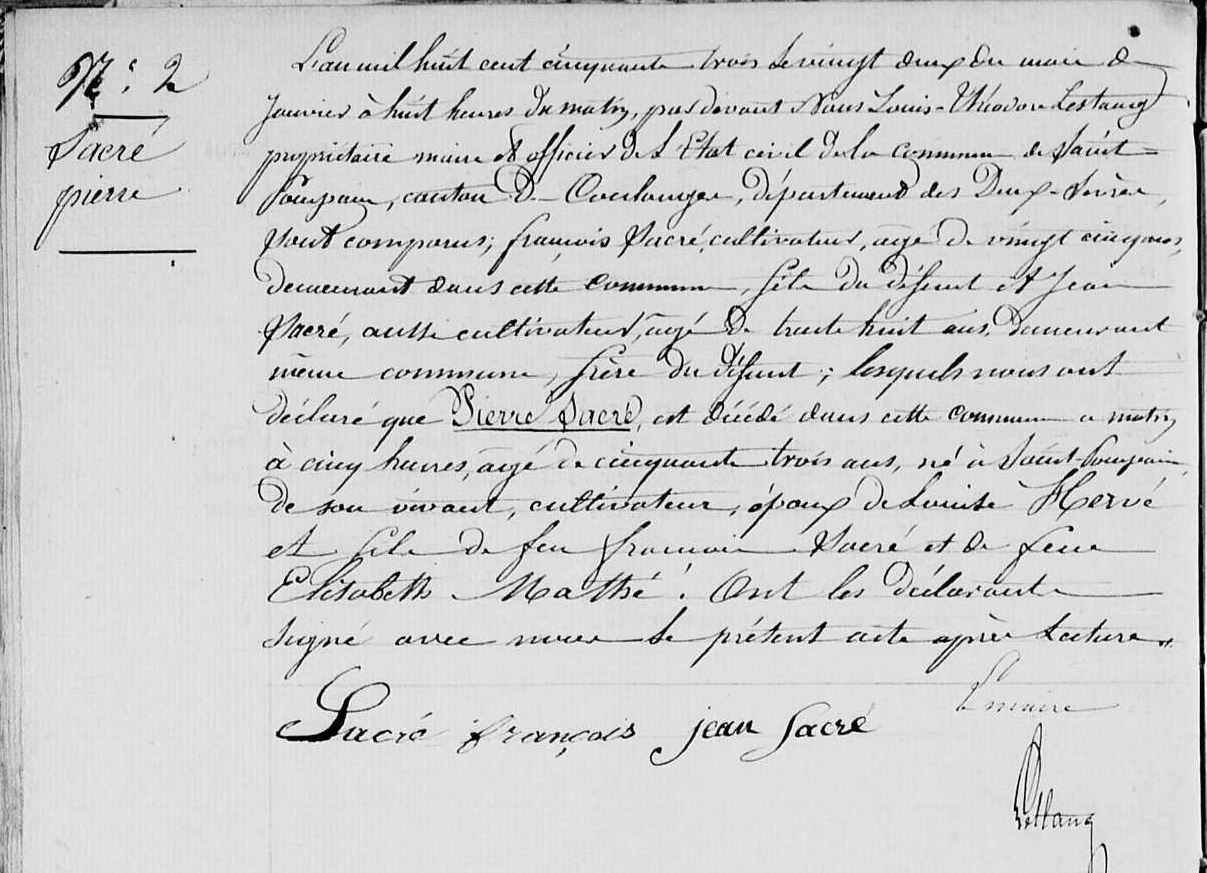 N.º 2
Sacré
pierre
L'an mil huit cent cinquante trois le vingt deux du mois de
Janvier à huit heures du matin, par devant Nous Louis-Théodore Lestang
propriétaire maire et officier de L'Etat civil de la commune de Saint=
Pompain, canton De Coulonges, département des Deux-Sèvres,
sont comparus; françois Sacré, cultivateur, agé de vingt cinq ans,
demeurant dans cette commune, fils du défunt et Jean
Sacré, aussi cultivateur, agé de trente huit ans, demeurant
même commune, frère du défunt; lesquels nous ont
déclaré que Pierre Sacré, est décédé dans cette commune ce matin
à cinq heures, agé de cinquante trois ans, né à Saint-Pompain,
de son vivant, cultivateur, époux de Louise Hervé
et fils de feu françois Sacré et de feue
Elisabeth Mathé. Ont les déclarants
signé avec nous le présent acte après lecture.
Le maire
Sacré françois jean Sacré
Lestang